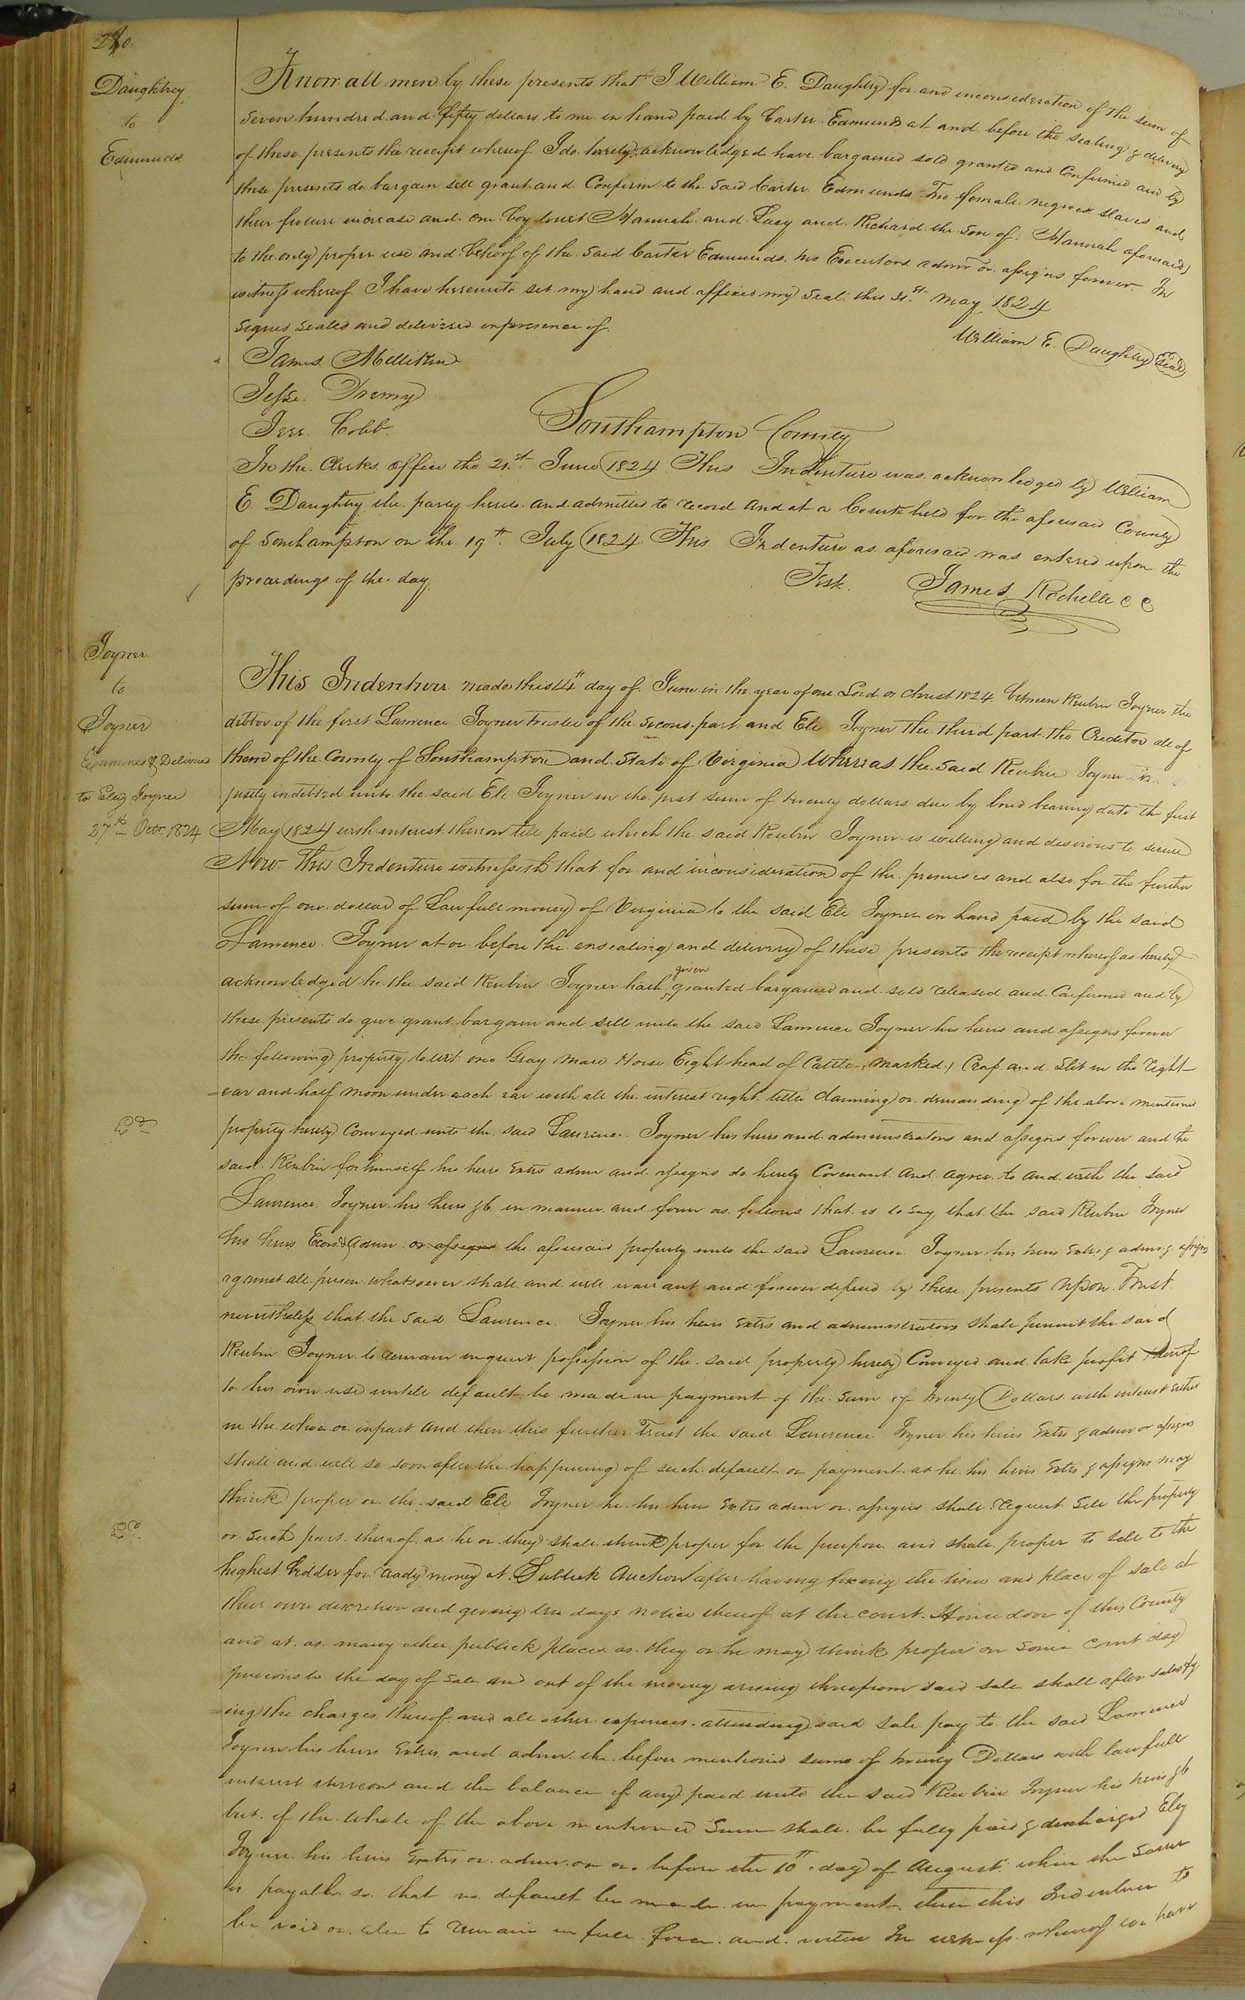 Daughtrey
to
Edmunds
Know all men by these presents that I William E. Daughtry for and inconsideration of the sum of
Seven hundred and fifty dollars to me in hand paid by Carter Edmunds at and before the sealing & delivery
of these presents the receipt whereof I do hereby acknowledged have bargained sold granted and Confirmed and by
these presents do bargain sell grant and Confirm to the said Carter Edmunds Two female negroes slaves and
their future increase and one boy towit Hannah and Lucy and Richard the son of Hannah aforesaid
to the only proper use and behoof of the said Carter Edmunds his Executors admr or assigns forever In
witness whereof I have hereunto set my hand and affixed my seal this 31st May 1824
Signed sealed and delivered in presence of
William E. Daughtry Seal
James Millikin
Jesse
Cobb
Southampton County
In the Clerks office the 21st June 1824 This Indenture was acknowledged by William
E Daughtry the party hereto and admitted to record and at a Court held for the aforesaid County
of Southampton on the 19th July 1824 This Indenture as aforesaid was entered upon the
proceedings of the day.
Test. James Rochelle CC
Joyner
to
Joyner
Examined & Delivered
to Eley Joyner
27th Octr 1824
This Indenture made this 14th day of June in the year of our Lord Christ 1824 between Reubin Joyner the
debtor of the first Lawrence Joyner trustee of the second part and Eli Joyner the third part the Creditor all of
them of the County of Southampton and State of Virginia Whereas the said Reubin Joyner is
justly indebted unto the said Eli Joyner in the just sum of twenty dollars due by bond bearing date the first
May 1824 with interest thereon till paid which the said Reubin Joyner is willing and desirous to secure
Now This Indenture witnesseth that for and inconsideration of the premises and also for the further
sum of one dollar of Lawfull money of Virginia to the said Eli Joyner in hand paid by the said
Lawrence Joyner at or before the ensealing and delivery of these presents the receipt whereof is hereby
acknowledged he the said Reubin Joyner hath given granted bargained and sold released and Confirmed and by
these presents do give grant bargain and sell unto the said Lawrence Joyner his heirs and assigns forever
the following property towit one Gray mare Horse Eight head of Cattle, marked, Crop and Slit in the right
=ear and half moon under each ear with all the interest right title claiming or demanding of the above mentioned
property hereby Conveyed unto the said Laurence Joyner his heirs and administrators and assigns forever and the
said Reubin for himself his heirs Extrs admr and assigns do hereby Covenant and agree to and with the said
Laurence Joyner his heirs &c in manner and form as follows that is to say that the said Reubin Joyner
his heirs & admr or assigns the aforesaid property unto the said Laurence Joyner his heirs Extrs & admrs & assigns
against all person whatsoever shall and will warrant and forever defend by these presents upon Trust
nevertheless that the said Laurence Joyner his heirs Extrs and administrators shall permit the said
Reubin Joyner to remain in quiet possession of the said property hereby Conveyed and take profit thereof
to his own use untill default be made in payment of the sum of twenty Dollars with interest either
in the whole or in part and then this further Trust the said Laurence Joyner his heirs Extrs & admr or assigns
shall and will so soon after the happening of such default or payment as he his heirs Extrs & assigns may
think proper or the said Eli Joyner he his heirs Extrs admr or assigns shall request sell the property
or such part thereof as he or they shall think proper for the purpose and shall proper to sell to the
highest bidder for ready money at Publick Auction after having fixing the time and place of sale at
their own discretion and giving ten days notice thereof at the court House door of this County
and at as many other publick places as they or he may think proper on some court day
previous to the day of sale and out of the money arising therefrom said sale shall after satisfy
=ing the charges thereof and all other expences attending said sale pay to the said Lawrence
Joyner his heirs Extrs and admr the before mentioned sums of twenty Dollars with lawfull
interest thereon and the balance if any paid unto the said Reubin Joyner his heirs &c
but if the whole of the above mentioned sum shall be fully paid & discharged Eley
Joyner his heirs Extrs or admr on or before the 10th day of August when the same
is payable so that no default be made in payment then this Indenture to
be void or else to remain in full force and virtue In witness whereof we have